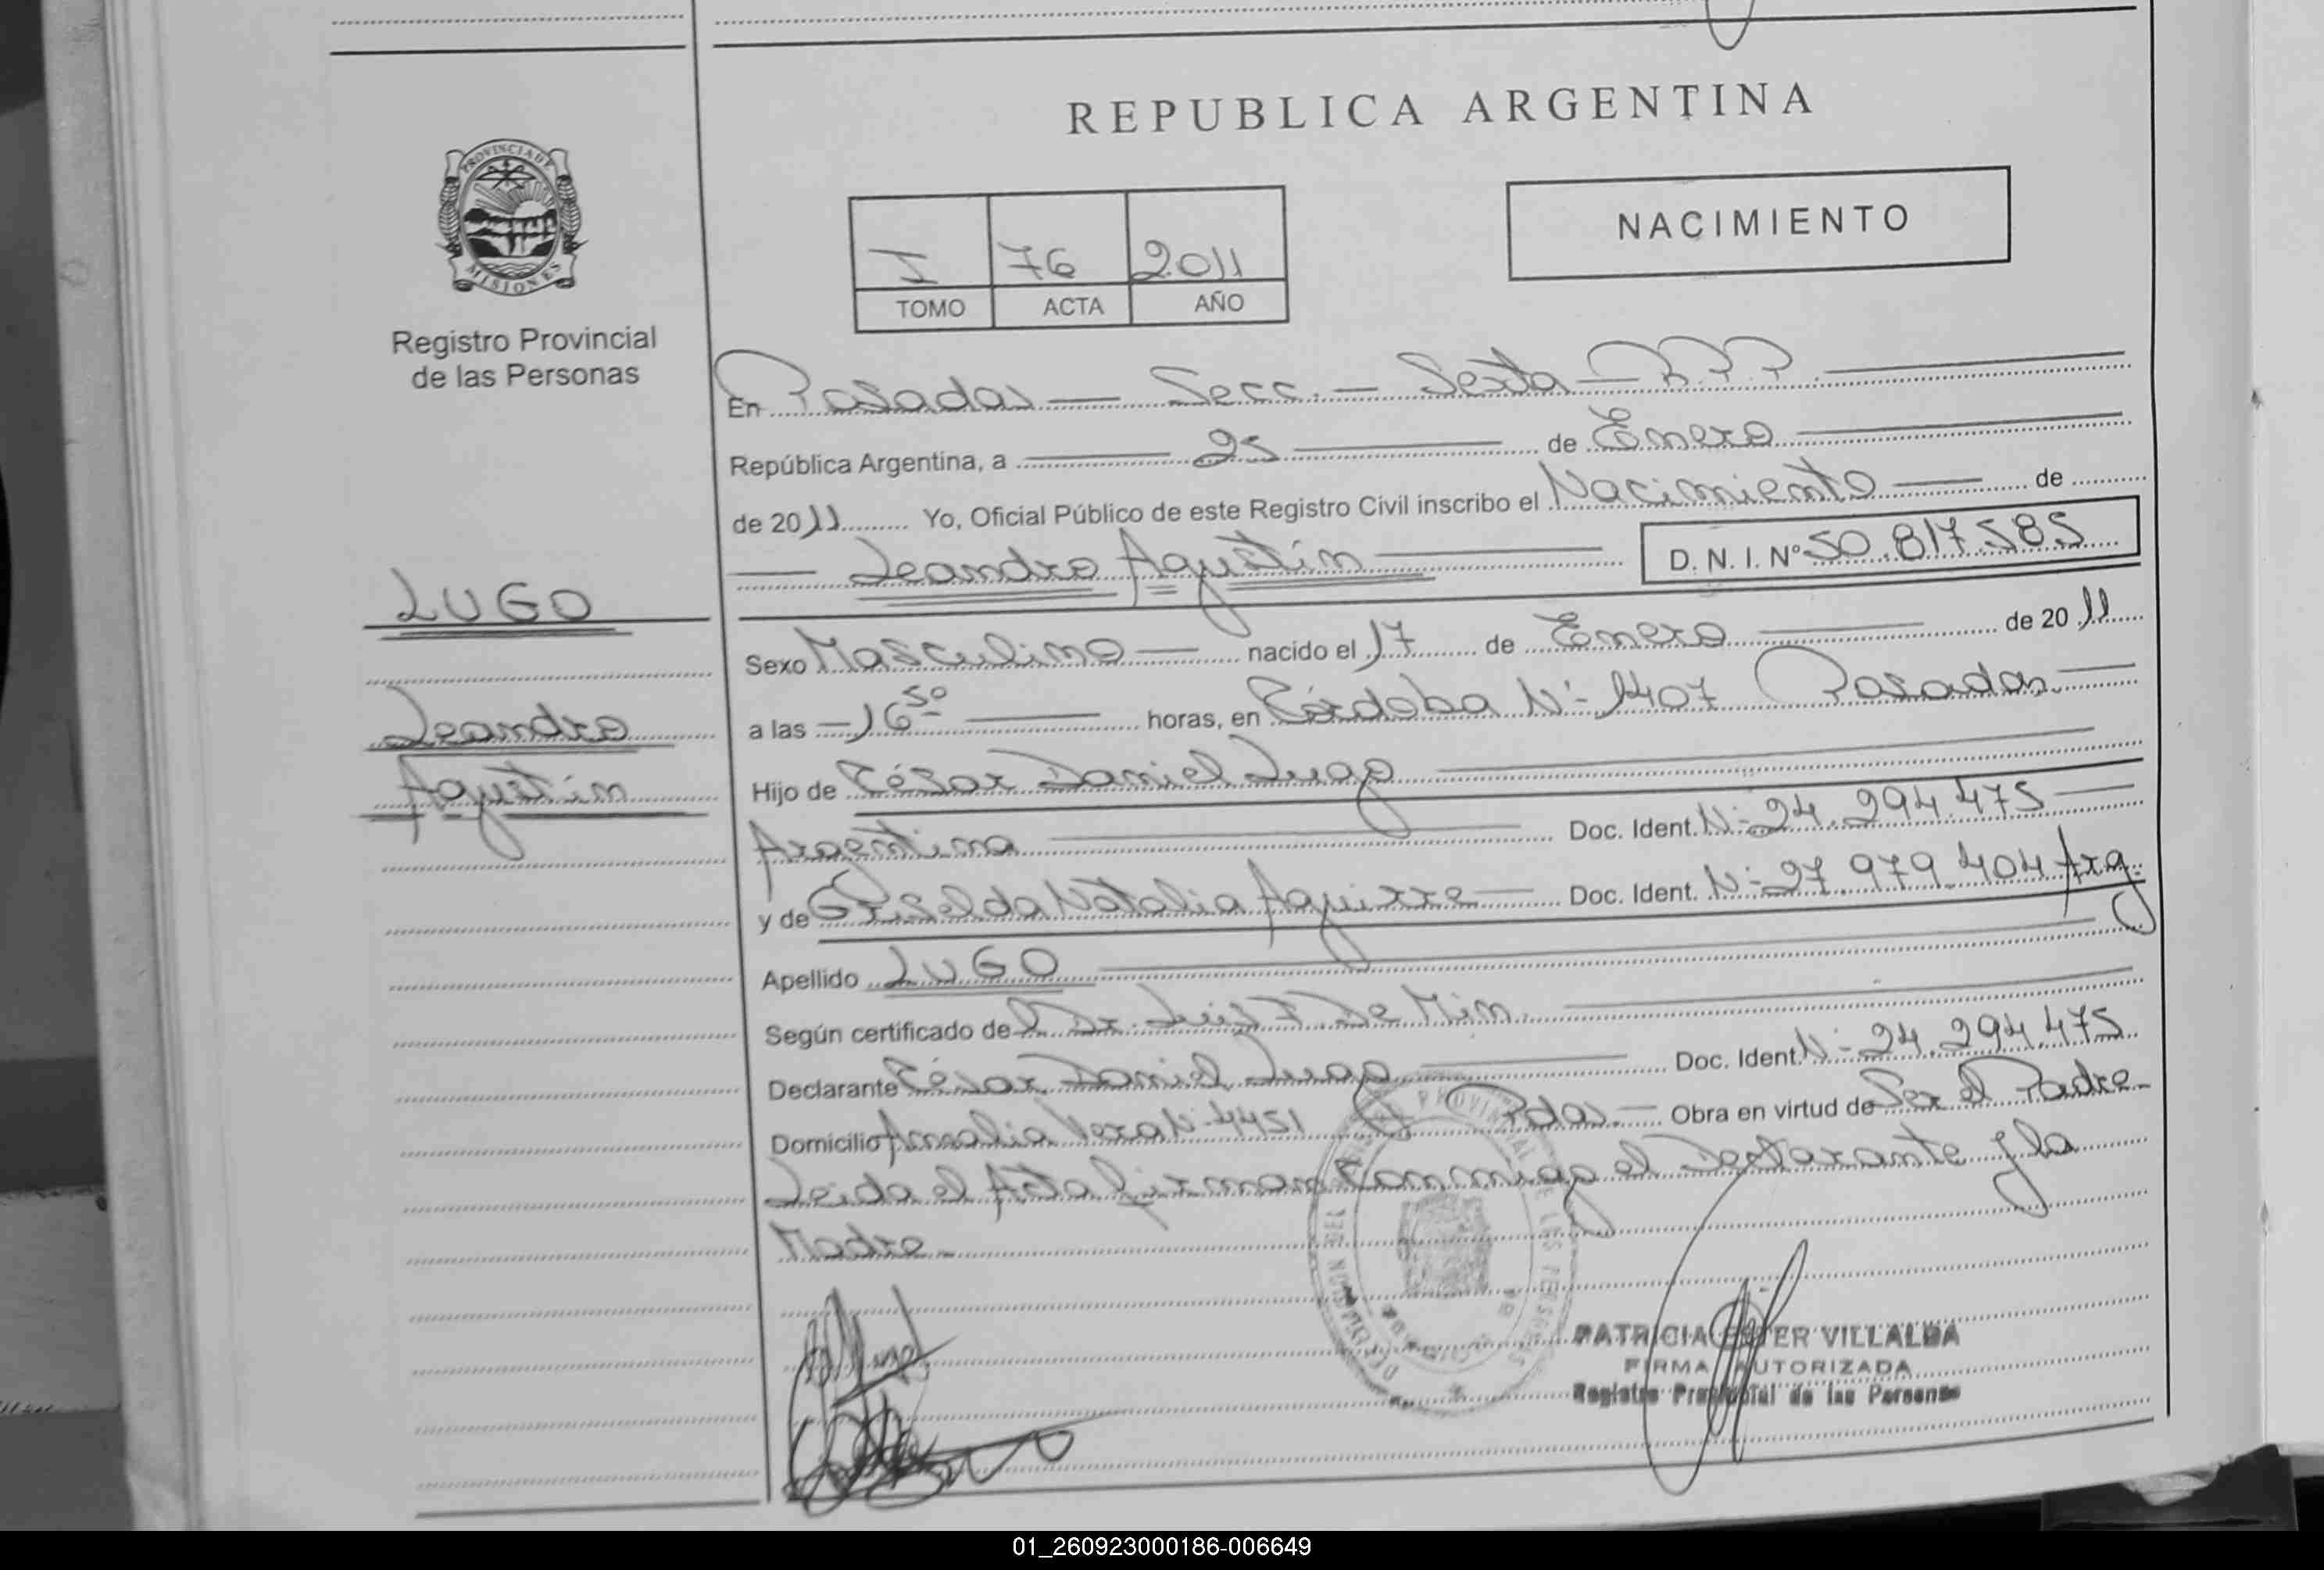 REPUBLICA ARGENTINA
PROVINCIA DE
MISIONES
Registro Provincial
de las Personas
I 76 2011
TOMO ACTA AÑO
NACIMIENTO
En Posadas — Secc. — Sexta — R.P.P.
República Argentina, a 25 de Enero
de 2011 Yo, Oficial Público de este Registro Civil inscribo el Nacimiento de
Leandro Agustín D. N. I. Nº 50.817.585
LUGO
Leandro
Agustín
Sexo Masculino nacido el 17 de Enero de 2011
a las 16 50 horas, en Córdoba Nº 1407 Posadas
Hijo de César Daniel Lugo
Argentino Doc. Ident. Nº 24.294.475
y de Griselda Natalia Aguirre Doc. Ident. Nº 27.979.404 Arg.
Apellido LUGO
Según certificado del Dr. Luis F. De Min
Declarante César Daniel Lugo Doc. Ident. Nº 24.294.475
Domicilio Amalia Vera Nº 4451 Pdas. Obra en virtud de Ser el Padre
Leida el Acta firman conmigo el Declarante y la
Madre
PATRICIA ESTER VILLALBA
FIRMA AUTORIZADA
Registro Provincial de las Personas
01_260923000186-006649